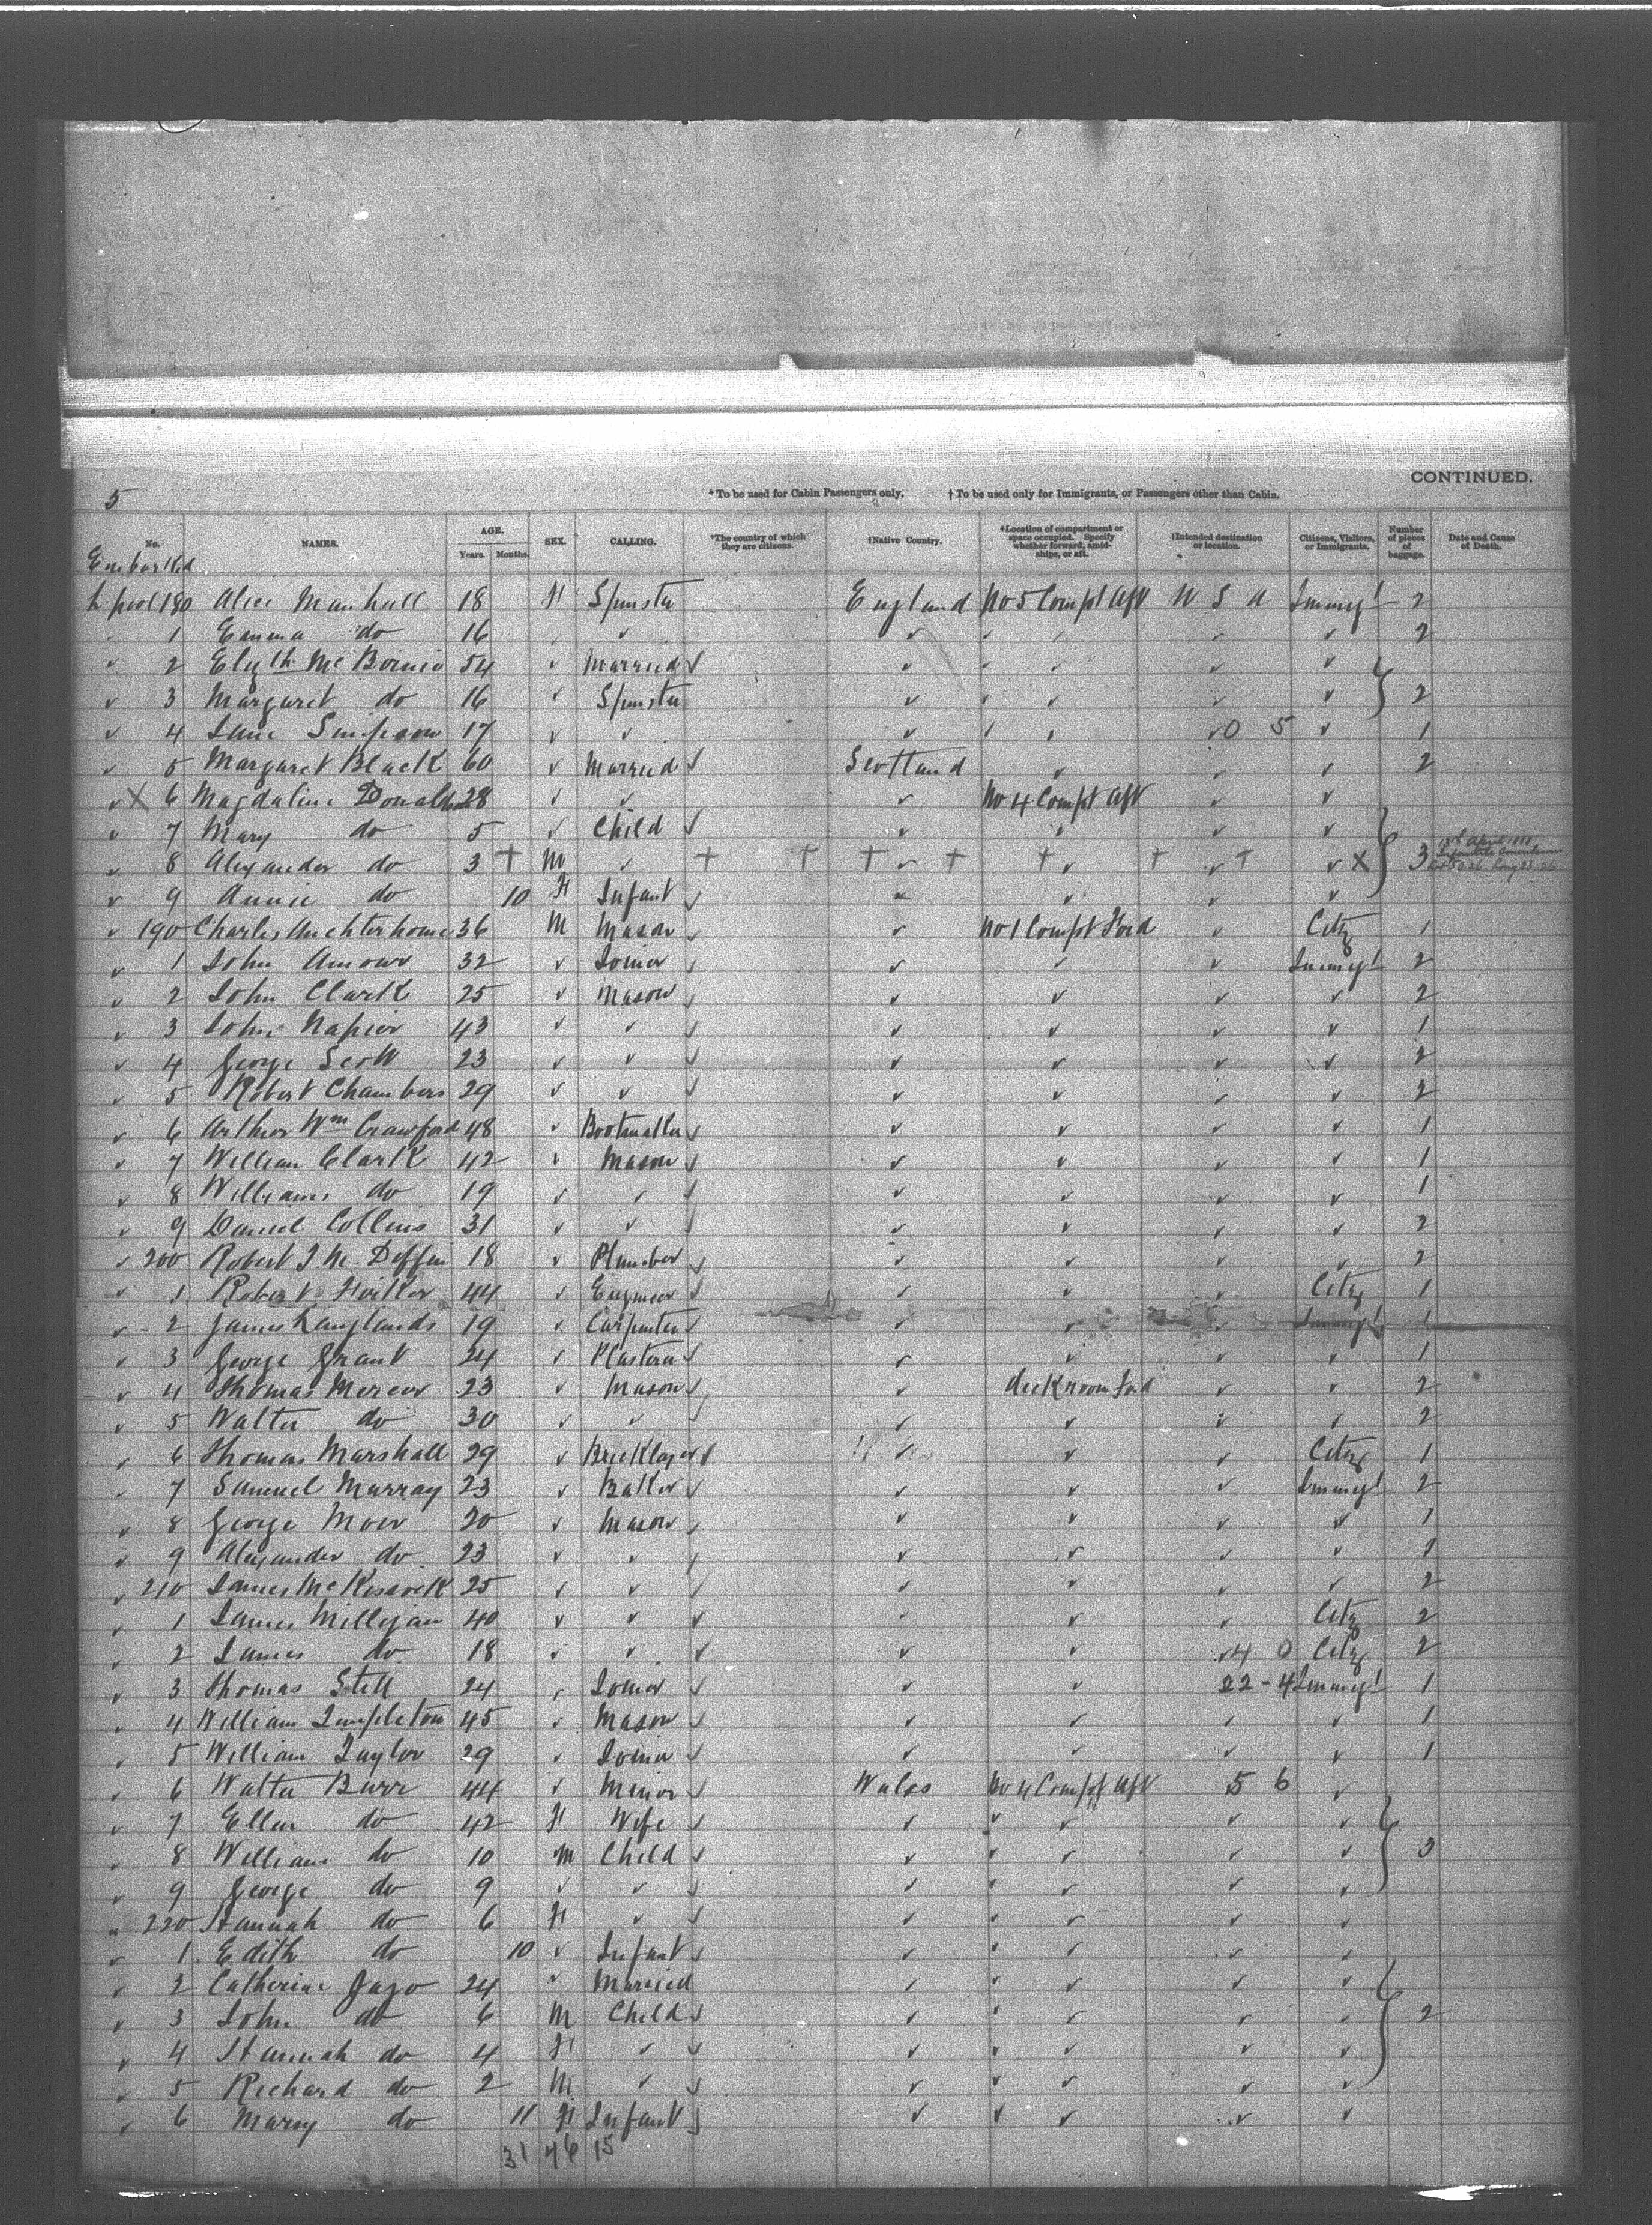 CONTINUED.
5 *To be used for Cabin Passengers only. †To be used only for Immigrants, or Passengers other than Cabin.
No. NAMES. AGE. Years. Months. SEX. CALLING. *The country of which they are citizens. †Native Country. †Location of compartment or space occupied. Specify whether forward, amidships, or aft. †Intended destination or location. Citizens, Visitors, or Immigrants. Number of pieces of baggage. Date and Cause of Death.
Embarked
L'pool 180 Alice Marshall 18 F Spinster England No 5 Compt Aft U S A Immgt 2
1 Emma do 16 2
2 Elizth Mc 54 Married
3 Margaret do 16 Spinster 2
4 Jane Simpson 17 0 5 1
5 Margaret Black 60 Married Scotland 2
X 6 Magdaline Donaldson 28 No 4 Compt Aft
7 Mary do 5 Child
8 Alexander do 3 † M † † † † † † † X 3 April
9 Annie do 10 F Infant
190 Charles Auchterhome 36 M Mason No 1 Compt Ford City 1
1 John Amour 32 Joiner Immgt 2
2 John Clark 25 Mason 2
3 John Napier 43 1
4 George Scott 23 2
5 Robert Chambers 29 2
6 Arthur Wm Crawford 48 Bootmaker 1
7 William Clark 42 Mason 1
8 William do 19 1
9 Daniel Collins 31 2
200 Robert 18 Plumber 2
1 Robert 44 Engineer City 1
2 James Langlands 19 Carpenter Immgt 1
3 George Grant 24 Plasterer 1
4 Thomas Mercer 23 Mason deck room ford 2
5 Walter do 30 2
6 Thomas Marshall 29 Bricklayer City 1
7 Samuel Murray 23 Baker Immgt 2
8 George Moir 20 Mason 1
9 Alexander do 23 1
210 James McKissock 25 2
1 James Milligan 40 City 2
2 James do 18 4 0 City 2
3 Thomas Still 24 Joiner 22-4 Immgt 1
4 William Templeton 45 Mason 1
5 William Taylor 29 Joiner 1
6 Walter Burr 44 Minor Wales No 4 Compt Aft 5 6
7 Ellen do 42 F Wife
8 William do 10 M Child 3
9 George do 9
220 Hannah do 6 F
1 Edith do 10 Infant
2 Catherine Jago 24 Married
3 John do 6 M Child 2
4 Hannah do 4 F
5 Richard do 2 M
6 Mary do 11 F Infant
31 46 15